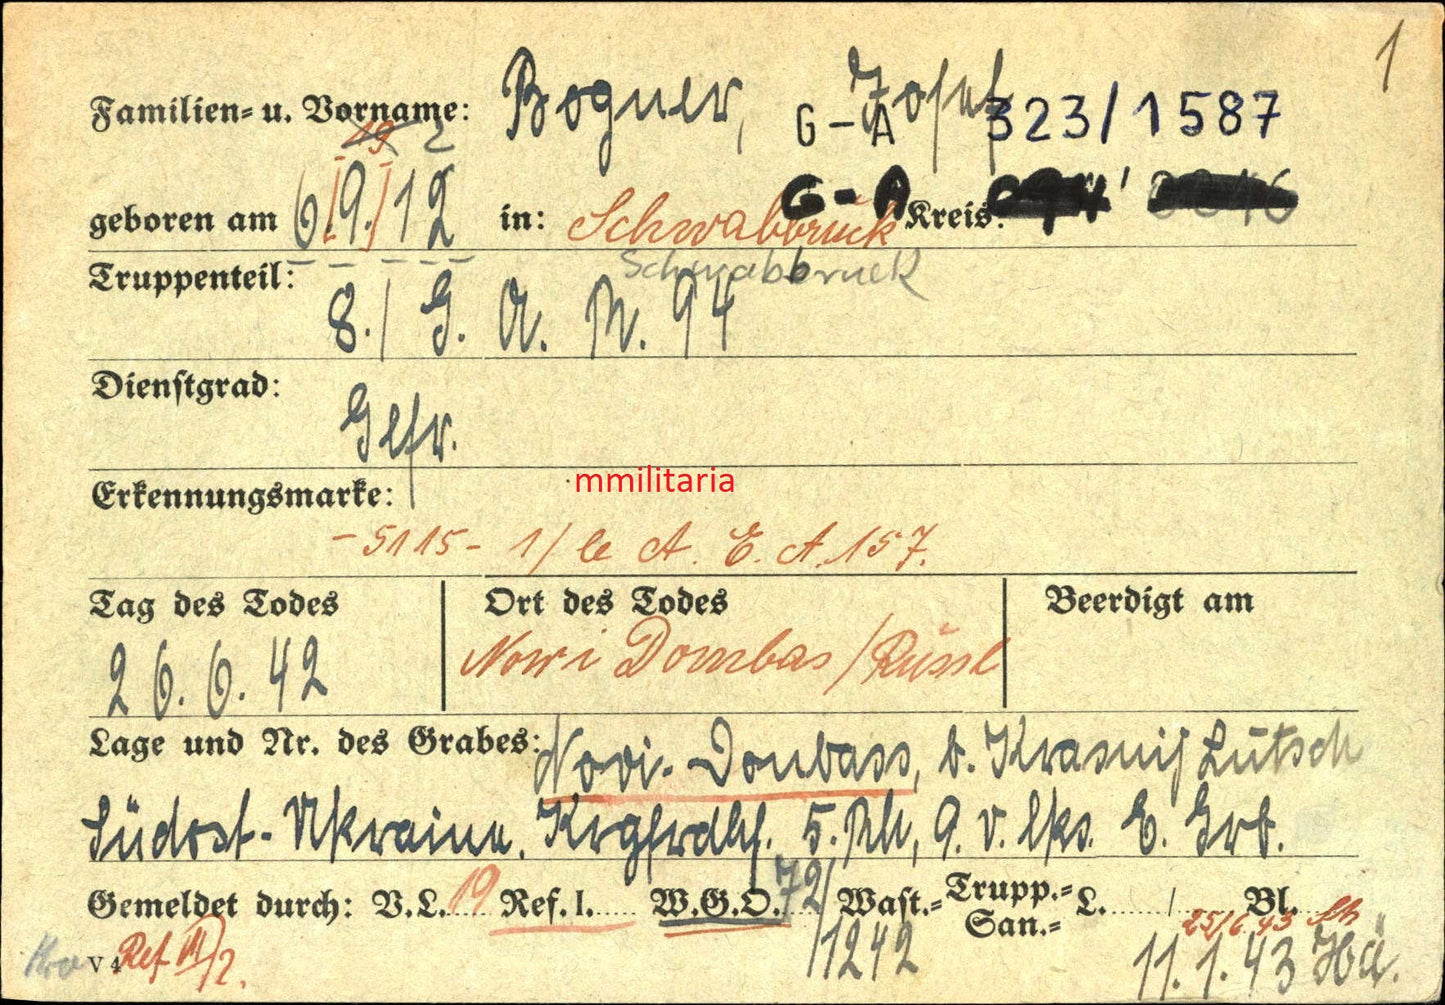 1
Familien= u. Vorname: Bogner, Josef
G-A 323/1587
19 2
geboren am 6.9.12 in: Schwabbruck Kreis:
G-A
Schwabbruck
Truppenteil: 8./G. A. R. 94
Dienstgrad: Gefr.
mmilitaria
Erkennungsmarke:
-5115- 1/le A. E. A. 157.
Tag des Todes Ort des Todes Beerdigt am
26.6.42 Nowi Dombas/Russl
Lage und Nr. des Grabes: Novi-Donbass, b. Krasnij Lutsch
Südost-Ukraine. Krgfrdhf. 5. Rh, 9. v. lks. E. Grb.
Gemeldet durch: V.L. 19 Ref. I. W.G.O. 72/ Wast.= Trupp.= San.= L. / Bl.
1242 25/6.43
V 4 Ref VII/2. 11.1.43 Hä.